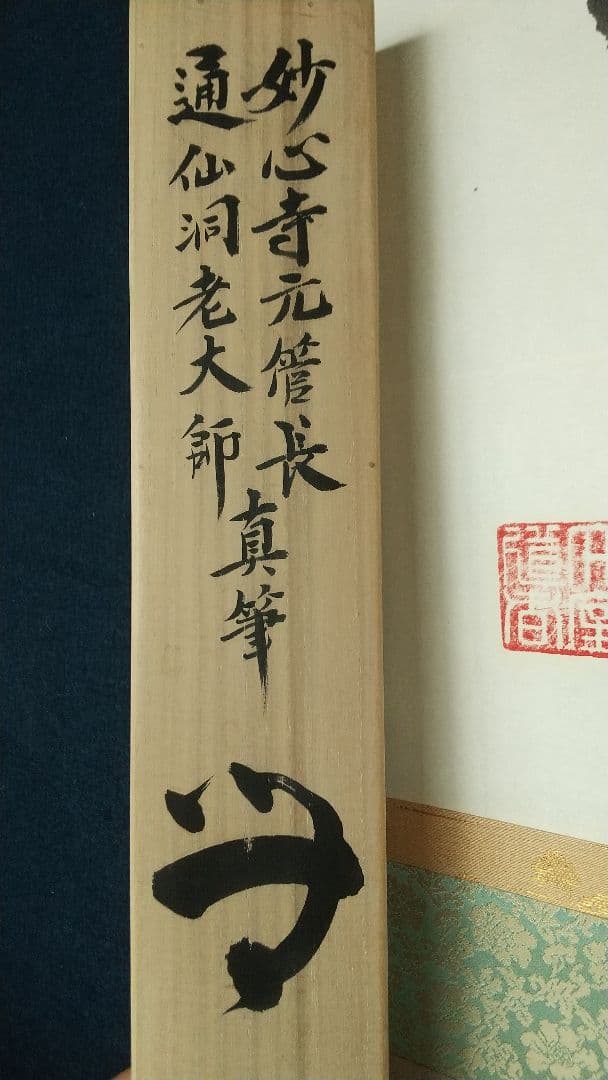 妙心寺元管長
通仙洞老大師
真筆